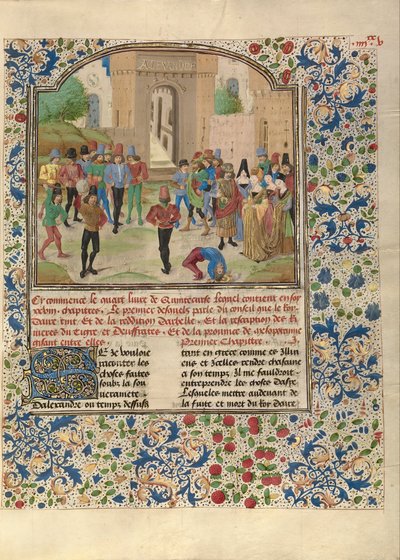 ALEXANDRE
Cy commence le quart livre de Quintecurse lequel contient en soy
xxvm. chapitres. Le premier desquelz parle du conseil que le Roy
Daire tint. Et de la reddition Darbelle. Et la description des Ri
uieres du Tigre et Deuffrates. Et de la prouince de mesopotamie
gisant entre elles.
Premier Chapitre.
Et Je vouloie
racompter les
choses faites
soubz la sou
ueraineté
Dalexandre ou temps dessus
tant en grece comme es Illiri
ens et Icelles rendre chascune
a son temps. Il me fauldroit
entreprendre les choses Dasye
Lesquelles mettre audeuant de
la fuite et mort du Roy Daire